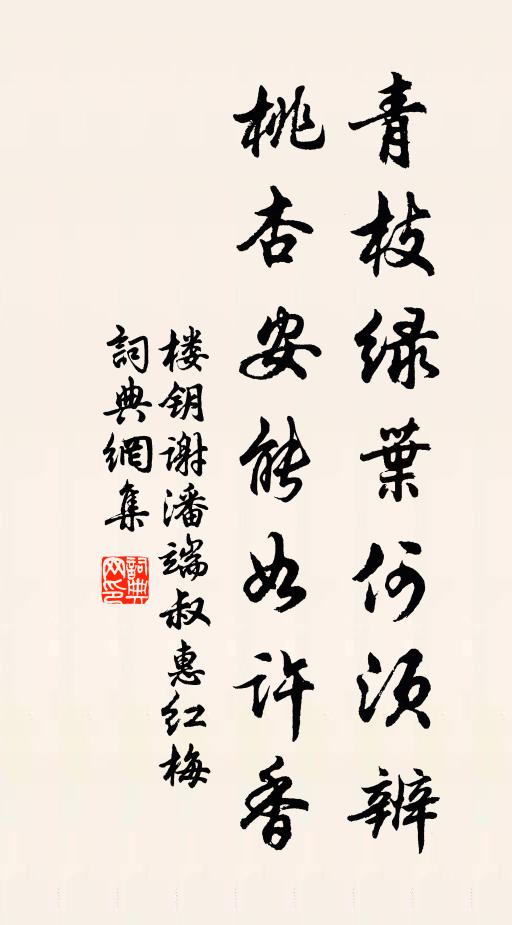 青枝绿葉何须辨
桃杏安能如许香
楼钥谢潘端叔惠红梅
詞典網集
詞典网印